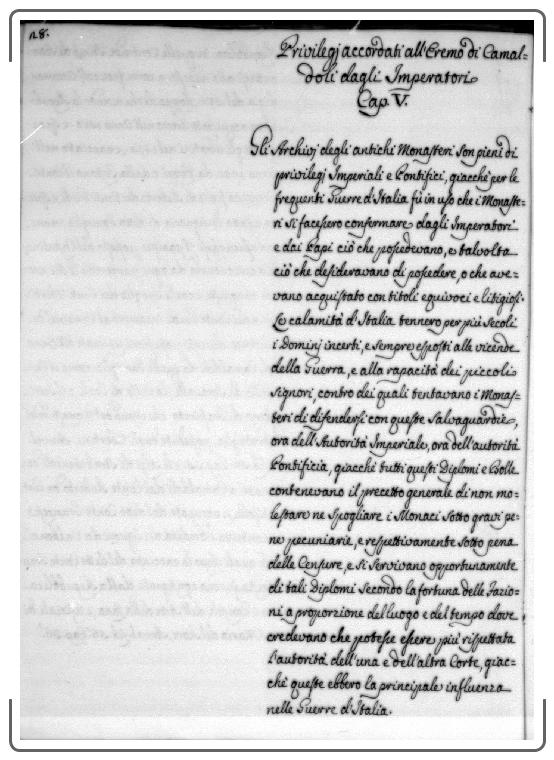 128.
Privilegj accordati all'Eremo di Camal=
doli dagli Imperatori
Cap. V.
Gli Archivj degli antichi Monasteri son pieni di
privilegj Imperiali e Pontificj, giacchè per le
frequenti Guerre d'Italia fù in uso che i Monaste=
ri si facessero confermare dagli Imperatori
e dai Papi ciò che possedevano, e talvolta
ciò che desideravano di possedere, o che ave=
vano acquistato con titoli equivoci e litigiosi.
Le calamità d'Italia tennero per più secoli
i Dominj incerti, e sempre esposti alle vicende
della Guerra, e alla rapacità dei piccoli
Signori, contro dei quali tentavano i Monas=
teri di difendersi con queste Salvaguardie,
ora dell'Autorità Imperiale, ora dell'autorità
Pontificia, giacchè tutti questi Diplomi e Bolle
contenevano il precetto generale di non mo=
lestare ne spogliare i Monaci sotto gravi pe=
ne pecuniarie, e respettivamente sotto pena
delle Censure, e si servivano opportunamente
di tali Diplomi secondo la fortuna delle Fazio=
ni a proporzione del luogo e del tempo dove
credevano che potesse essere più rispettata
l'autorità dell'una e dell'altra Corte, giac=
chè queste ebbero la principale influenza
nelle Guerre d'Italia.